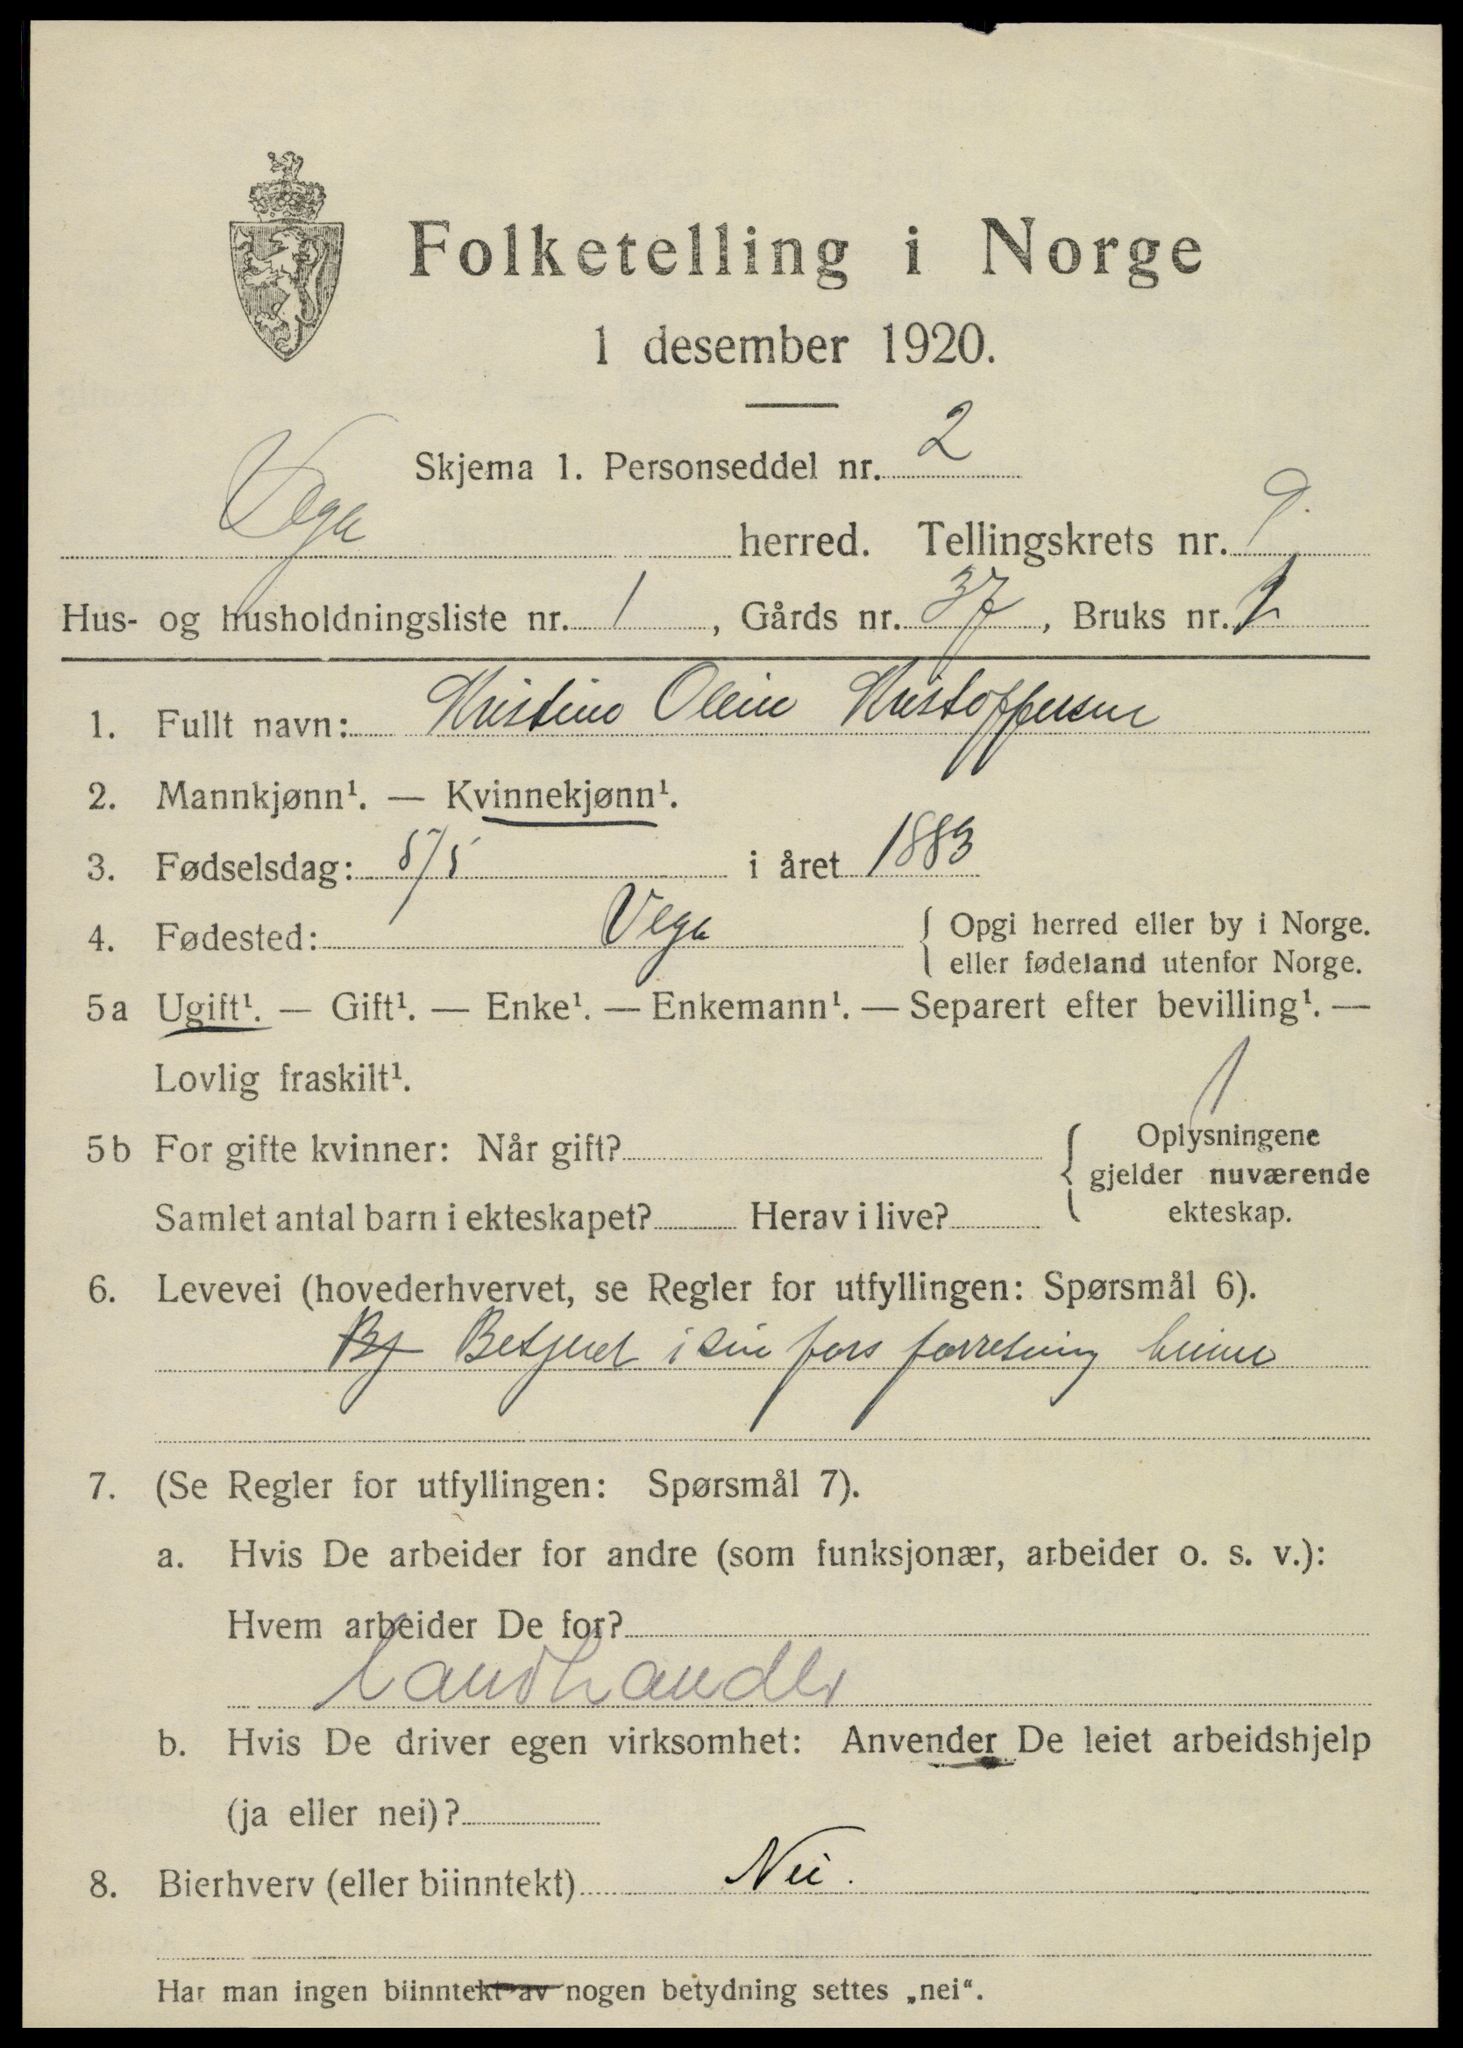 Folketelling i Norge
1 desember 1920.
Skjema 1. Personseddel nr. 2
Vega herred. Tellingskrets nr. 9.
Hus- og husholdningsliste nr. 1, Gårds nr. 37, Bruks nr.
1. Fullt navn: Kristine Oline Kristoffersen
2. Mannkjønn¹. — Kvinnekjønn¹.
3. Fødselsdag: 5/5 i året 1883
4. Fødested: Vega { Opgi herred eller by i Norge.
eller fødeland utenfor Norge.
5a Ugift¹. — Gift¹. — Enke¹. — Enkemann¹. — Separert efter bevilling¹. —
Lovlig fraskilt¹.
1
5b For gifte kvinner: Når gift? { Oplysningene
gjelder nuværende
Samlet antal barn i ekteskapet? Herav i live? ekteskap.
6. Levevei (hovederhvervet, se Regler for utfyllingen: Spørsmål 6).
Bj Betjent i sin fars forretning hjeme
7. (Se Regler for utfyllingen: Spørsmål 7).
a. Hvis De arbeider for andre (som funksjonær, arbeider o. s. v.):
Hvem arbeider De for?
Landhandler
b. Hvis De driver egen virksomhet: Anvender De leiet arbeidshjelp
(ja eller nei)?
8. Bierhverv (eller biinntekt) Nei.
Har man ingen biinntekt av nogen betydning settes „nei“.